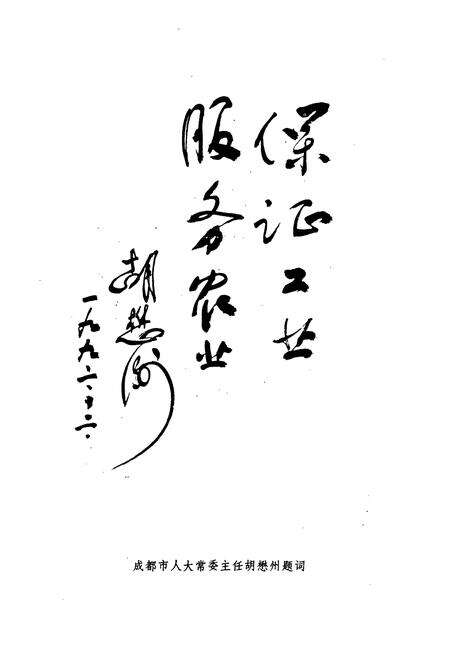 保证工业
服务农业
胡懋州
一九九二·十二·
成都市人大常委主任胡懋州题词